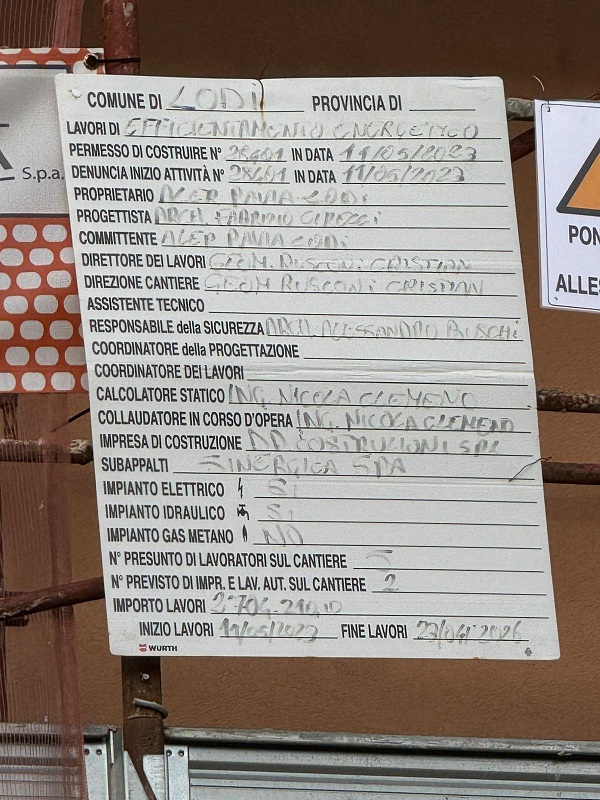 S.p.a.
COMUNE DI LODI PROVINCIA DI
LAVORI DI EFFICIENTAMENTO ENERGETICO
PERMESSO DI COSTRUIRE N° 28601 IN DATA 11/05/2023
DENUNCIA INIZIO ATTIVITÀ N° 28601 IN DATA 11/05/2023
PROPRIETARIO ALER PAVIA LODI
PROGETTISTA ARCH. FABRIZIO
COMMITTENTE ALER PAVIA LODI
DIRETTORE DEI LAVORI GEOM. RUSCONI CRISTIAN
DIREZIONE CANTIERE GEOM RUSCONI CRISTIAN
ASSISTENTE TECNICO
RESPONSABILE della SICUREZZA ARCH. ALESSANDRO
COORDINATORE della PROGETTAZIONE
COORDINATORE DEI LAVORI
CALCOLATORE STATICO ING. NICOLA CLEMENO
COLLAUDATORE IN CORSO D'OPERA ING. NICOLA CLEMENO
IMPRESA DI COSTRUZIONE DD COSTRUZIONI SRL
SUBAPPALTI SINERGICA SPA
IMPIANTO ELETTRICO SI
IMPIANTO IDRAULICO SI
IMPIANTO GAS METANO NO
N° PRESUNTO DI LAVORATORI SUL CANTIERE 5
N° PREVISTO DI IMPR. E LAV. AUT. SUL CANTIERE 2
IMPORTO LAVORI
INIZIO LAVORI 11/05/2023 FINE LAVORI
WÜRTH
PON
ALLES